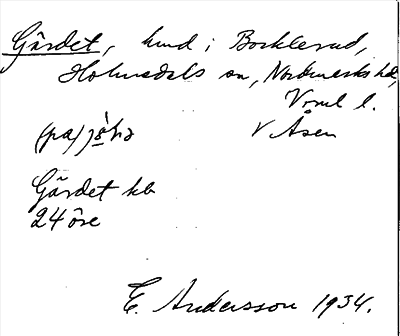 Gärdet, hmd i Bocklerud,
Holmedals sn, Nordmarks hd,
Vrml l.
(pa) jæ̀ḷə V Åsen
Gärdet kb
24 öre
E. Andersson 1934.